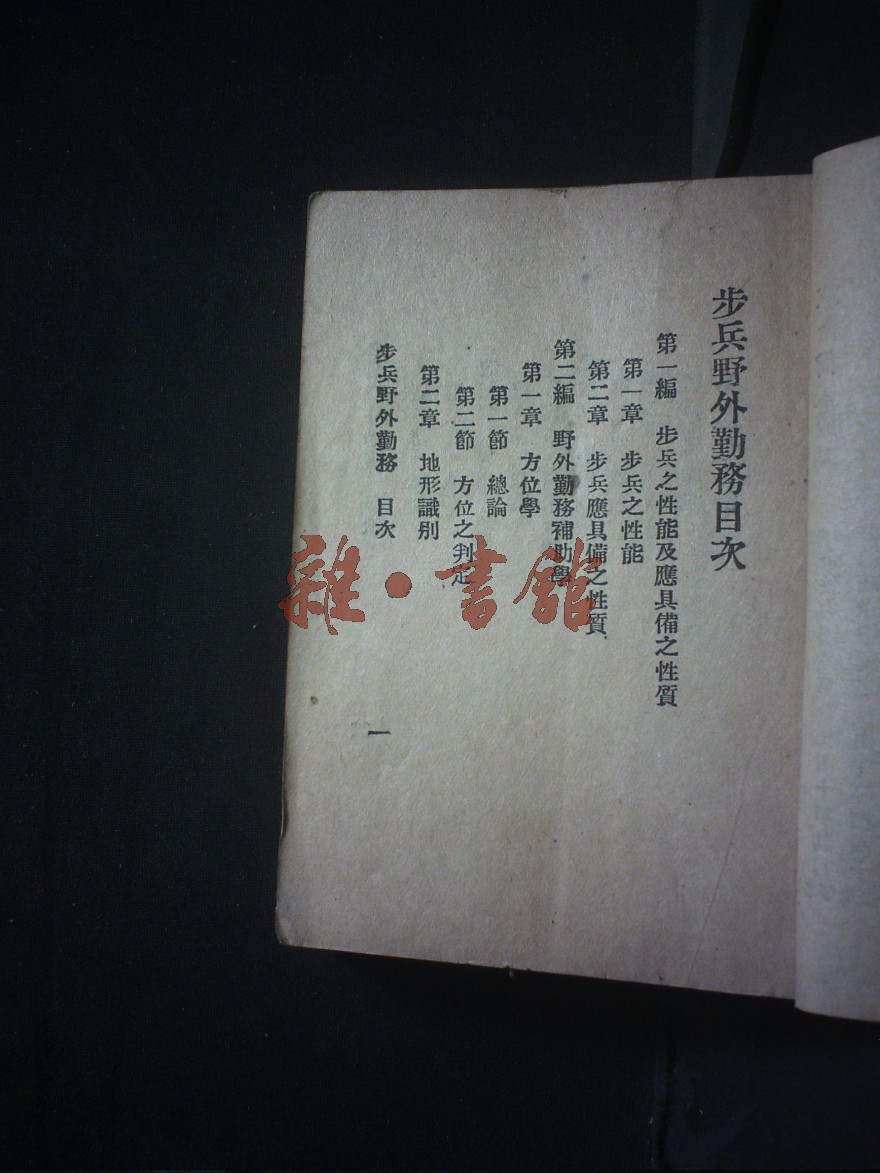 步兵野外勤務目次
第一編　步兵之性能及應具備之性質
第一章　步兵之性能
第二章　步兵應具備之性質
第二編　野外勤務補助學
第一章　方位學
第一節　總論
第二節　方位之判定
第二章　地形識別
步兵野外勤務　目次
一
雜·書館